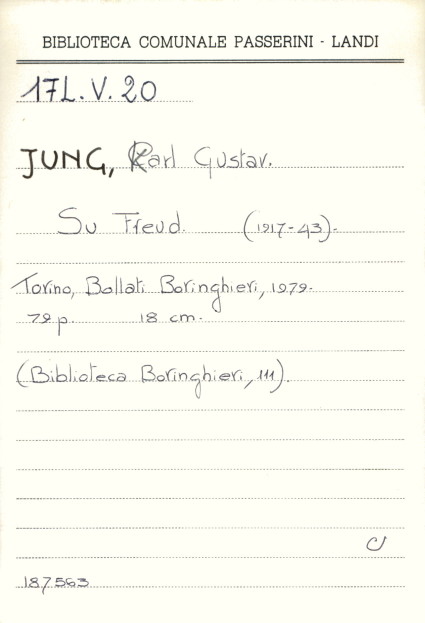 BIBLIOTECA COMUNALE PASSERINI - LANDI
17L.V.20
JUNG, Karl Gustav.
Su Freud. (1917-43).
Torino, Bollati Boringhieri, 1979.
79 p. 18 cm.
(Biblioteca Boringhieri, 111).
187563